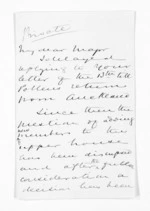 Private
My dear Major
I delayed
replying to your
letter of the 13th till
Pollens return
from Auckland
Since then the
question of adding
members to the
upper house
has been discussed
and after great
consideration a
decision has been